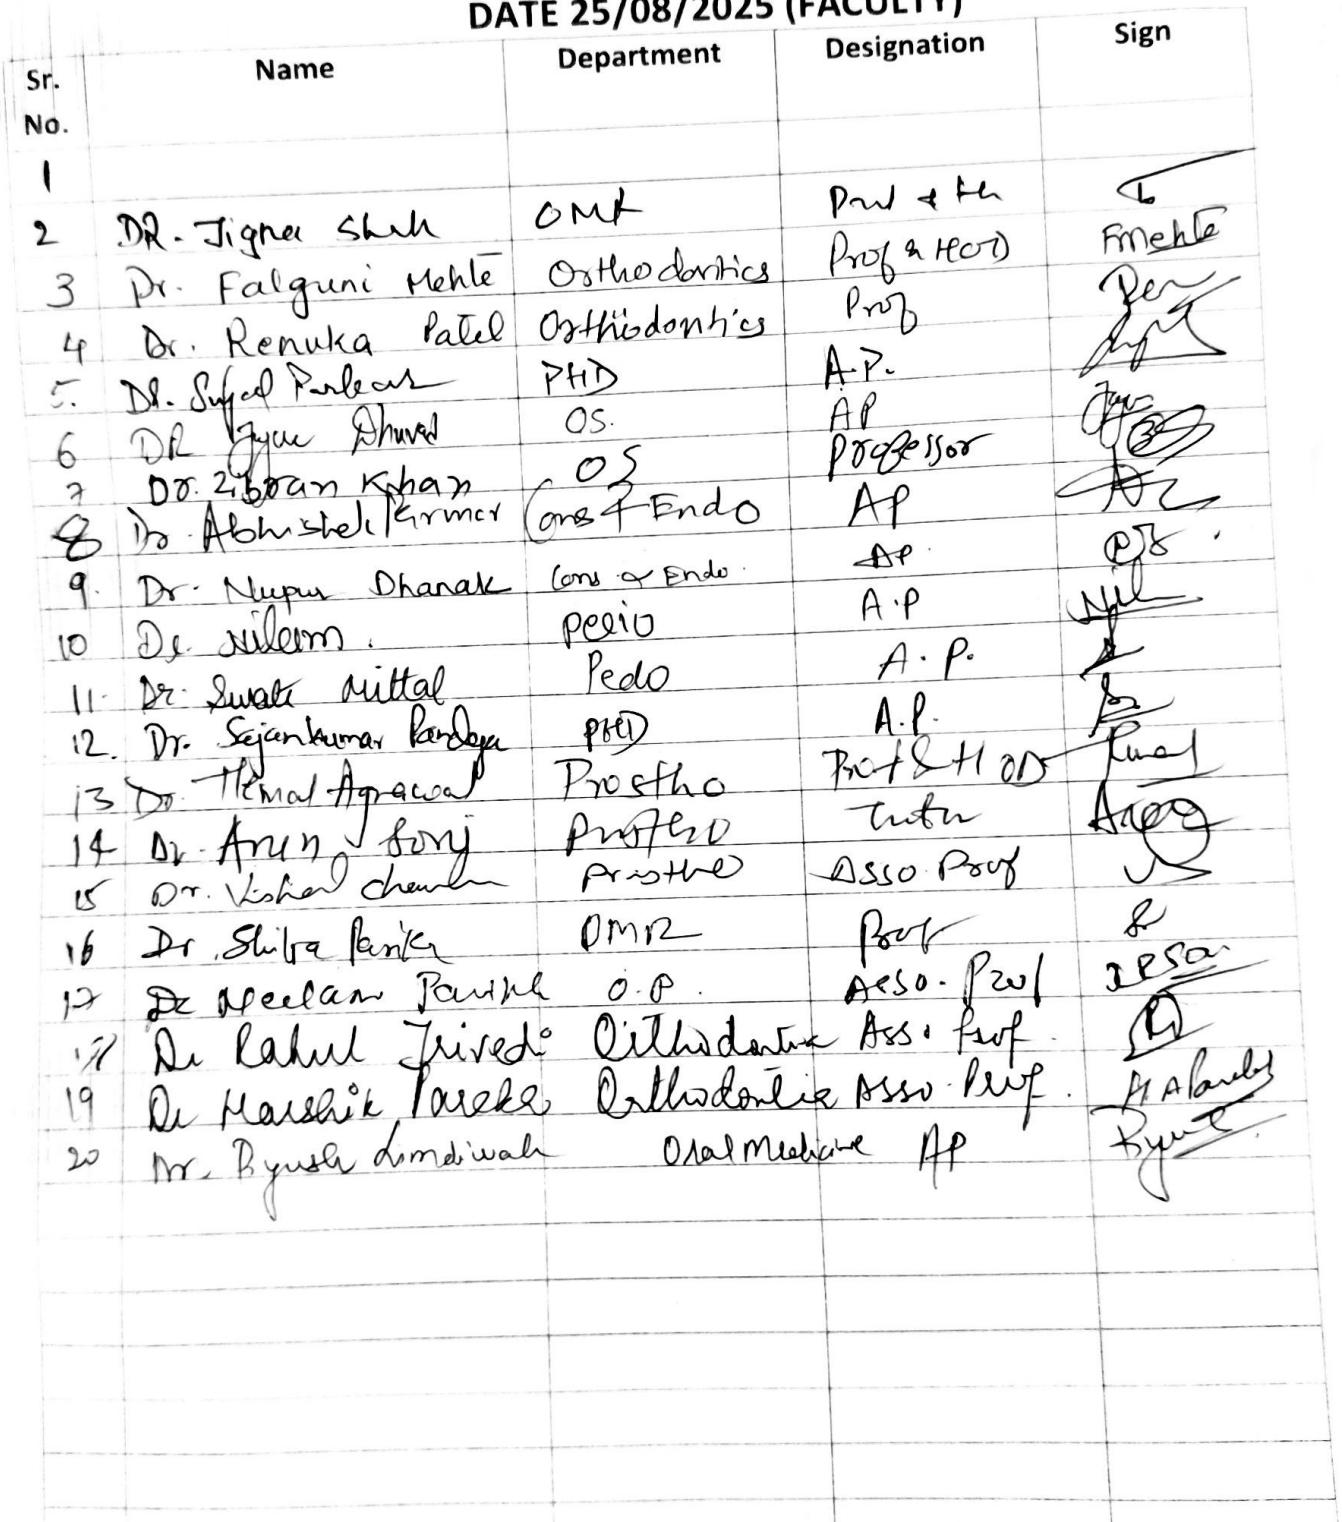 DATE 25/08/2025 (FACULTY)
Sr. No. Name Department Designation Sign
1
2 DR. Jigna Shah OMR
3 Dr. Falguni Mehta Orthodontics Prof & HOD FMehta
4 Dr. Renuka Patel Orthodontics Prof
5. Dr. PHD A.P.
6 DR Dhuvad OS. AP
7 Dr. Zibran Khan OS Professor
8 Dr. Abhishek Parmar Cons & Endo AP
9. Dr. Nupur Dhanak Cons & Endo. AP
10 Dr. Nilam. Perio A.P
11. Dr. Swati Mittal Pedo A.P.
12. Dr. Sajankumar Pandya PHD A.P.
13 Dr. Hemal Agrawal Prostho Prof & HOD
14 Dr. Arun Soni Prostho Tutor
15 Dr. Vishal Prostho Asso. Prof
16 Dr. Shilpa Parikh OMR Prof
17 Dr Neelam Parikh O.P. Asso. Prof
Dr Rahul Trivedi Orthodontic Asso. Prof.
19 Dr Harshik Parekh Orthodontic Asso. Prof.
20 Dr. Piyush Limdiwala Oral Medicine AP